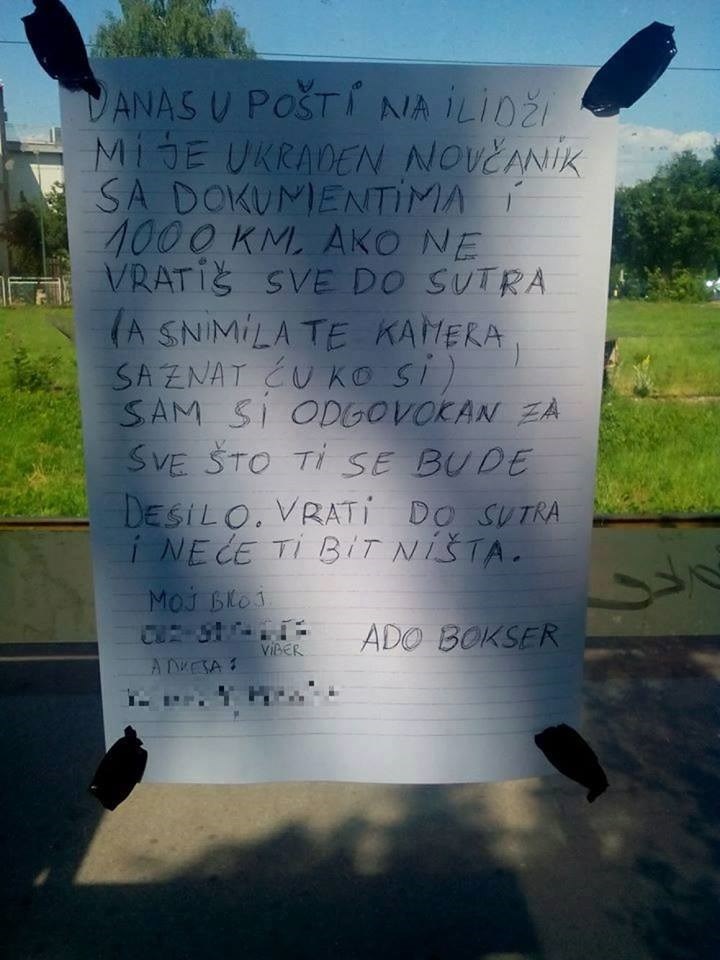 DANAS U POŠTI NA ILIDŽI
MI JE UKRADEN NOVČANIK
SA DOKUMENTIMA I
1000 KM. AKO NE
VRATIŠ SVE DO SUTRA
(A SNIMILA TE KAMERA,
SAZNAT ĆU KO SI)
SAM SI ODGOVORAN ZA
SVE ŠTO TI SE BUDE
DESILO. VRATI DO SUTRA
I NEĆE TI BIT NIŠTA.
MOJ BROJ
VIBER
ADO BOKSER
ADRESA: